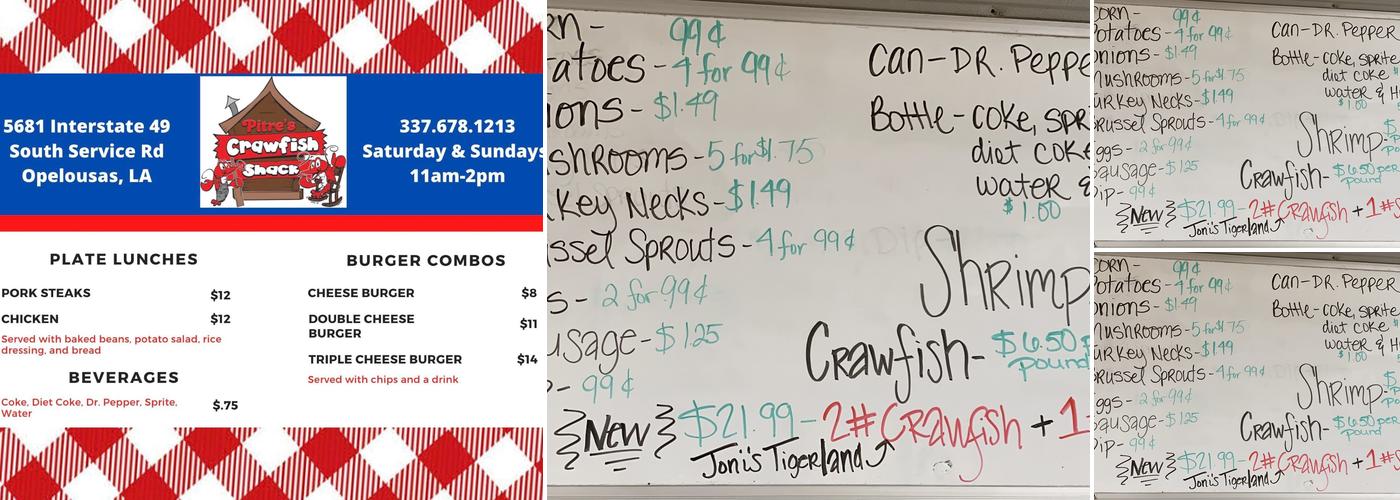 5681 Interstate 49
South Service Rd
Opelousas, LA
Pitre's
Crawfish
Shack
337.678.1213
Saturday & Sundays
11am-2pm
PLATE LUNCHES
PORK STEAKS $12
CHICKEN $12
Served with baked beans, potato salad, rice
dressing, and bread
BEVERAGES
Coke, Diet Coke, Dr. Pepper, Sprite, $.75
Water
BURGER COMBOS
CHEESE BURGER $8
DOUBLE CHEESE $11
BURGER
TRIPLE CHEESE BURGER $14
Served with chips and a drink
rn- 99¢
atoes - 4 for 99¢
ions - $1.49
shrooms - 5 for $1.75
key Necks - $1.49
ssel Sprouts - 4 for 99¢
s - 2 for 99¢
usage - $1.25
p- 99¢
Can - DR. Peppe
Bottle - coke, spr
diet coke
water &
$1.00
Shrimp
Crawfish - $6.50 p
pound
New $21.99 - 2# Crawfish + 1
Joni's Tigerland
orn - 99¢
Potatoes - 4 for 99¢
nions - $1.49
Mushrooms - 5 for $1.75
urkey Necks - $1.49
Brussel Sprouts - 4 for 99¢
ggs - 2 for 99¢
ausage - $1.25
ip - 99¢
Can - DR. Pepper
Bottle - coke, sprite
diet coke
water & H
$1.00
Shrimp - $
po
Crawfish - $6.50 per
pound
New $21.99 - 2# Crawfish + 1#S
Joni's Tigerland
orn - 99¢
Potatoes - 4 for 99¢
nions - $1.49
Mushrooms - 5 for $1.75
urkey Necks - $1.49
Brussel Sprouts - 4 for 99¢
ggs - 2 for 99¢
ausage - $1.25
ip - 99¢
Can - DR. Pepper
Bottle - coke, sprite
diet coke
water & H
$1.00
Shrimp - $
po
Crawfish - $6.50 per
pound
New $21.99 - 2# Crawfish + 1#S
Joni's Tigerland